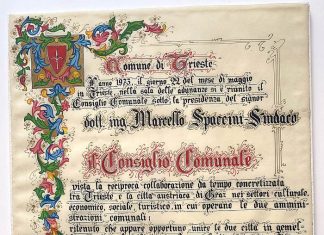 Comune di Trieste
L'anno 1973, il giorno 22 del mese di maggio
in Trieste, nella sala delle adunanze si è riunito il
Consiglio Comunale sotto la presidenza del signor
dott. ing. Marcello Spaccini-Sindaco
il Consiglio Comunale
vista la reciproca collaborazione da tempo concretizzata
tra Trieste e la città austriaca di Graz nei settori culturale,
economico, sociale, turistico, in cui operano le due ammini-
strazioni comunali;
ritenuto che appare opportuno unire le due città in gemel-